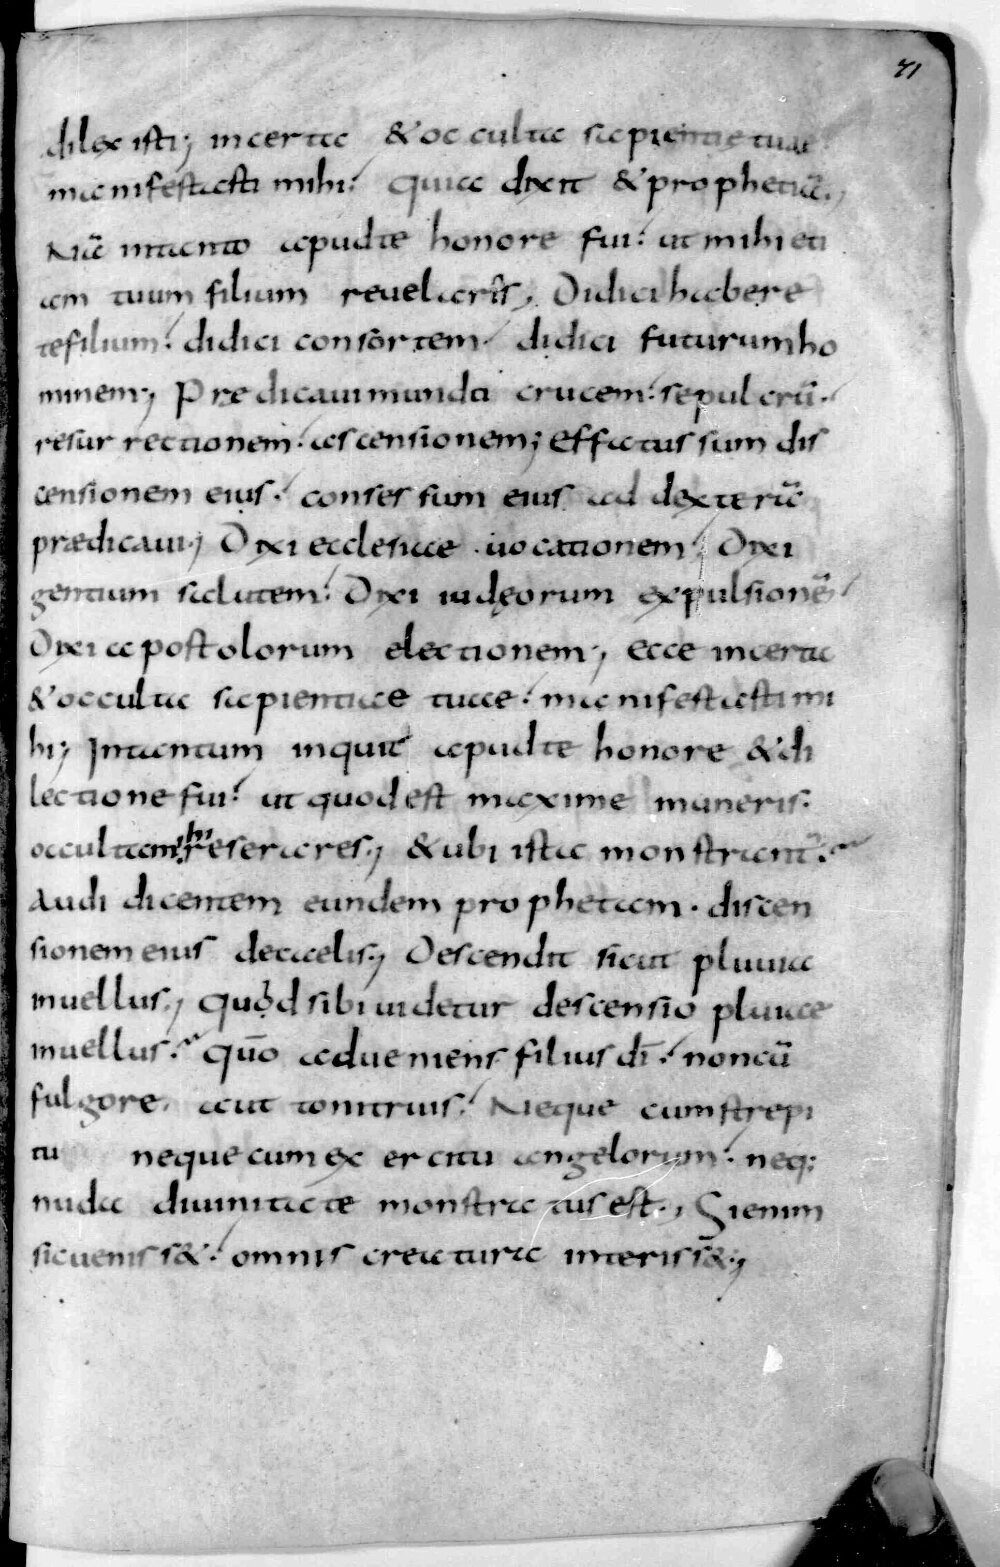 71
dilexisti; incerta & occulta sapientie tuae
manifestasti mihi. quia dixit & prophetiā.,
Nā intanto apud te honore fui. ut mihi eti
am tuum filium revelaris., Didici habere
te filium. didici consortem. didici futurum ho
minem; Predicavi mundi crucem. sepulcrū.
resurrectionem. ascensionem; Effatus sum dis
censionem eius. consessum eius ad dexterā
prædicavi., Dixi ecclesiae vocationem. Dixi
gentium salutem. Dixi iudęorum expulsionē.
Dixi apostolorum electionem., ecce incerta
& occulta sapientiae tuae. manifestasti mi
hi; Intantum inquit apud te honore & di
lectione fui. ut quod est maxime muneris.
occultam mihi reserares., & ubi ista monstrant̄.
Audi dicentem eundem prophetam. discen
sionem eius decaelis., Descendit sicut pluvia
invellus., Quod sibi videtur descensio pluviae
invellus. quō adveniens filius dī. non cū
fulgore. aut tonitruis. Neque cum strepi
tu neque cum exercitu angelorum. neq;
nuda divinitate monstratus est., Si enim
sic veniss&. omnis creatura interiss&.,